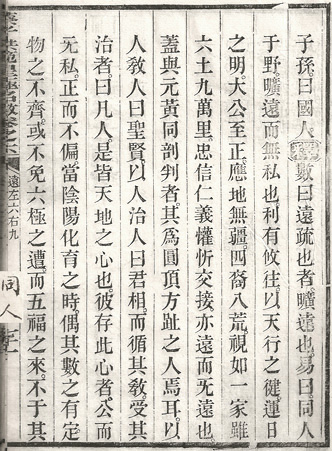 子孫。曰國人數曰。遠疏也。者。曠遠也。易曰。同人
于野。曠遠而無私也。利有攸往。以天行之健。運日
之明。大公至正。應地無疆。四裔八荒。視如一家。雖
六土九萬里。忠信仁義。懽忻交接。亦遠而旡遠也。
蓋與元黃同剖判者。其爲圓頂方趾之人焉耳。以
人教人曰聖賢。以人治人曰君相。而循其教。受其
治者。曰凡人。是皆天地之心也。彼存此心者。公而
无私。正而不偏。當陰陽化育之時。偶其數之有定。
物之不齊。或不免六極之遭。而五福之來。不于其
遠左一六右九
同人